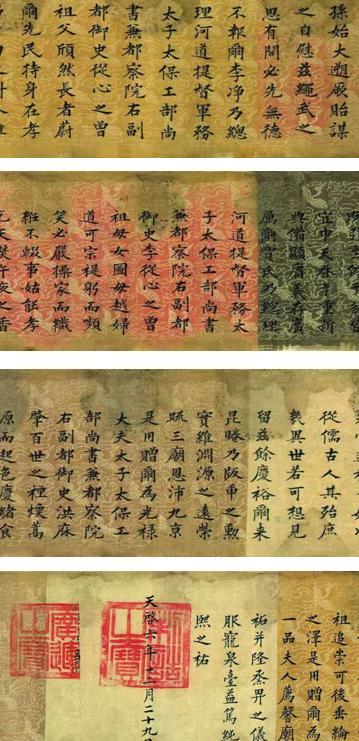 孫始大朔厥貽謀
之自慰茲繩武之
思有開必先無德
不報爾李净乃總
理河道提督軍務
太子太保工部尚
書兼都察院右副
都御史從心之曾
祖父頎然長者蔚
爾先民持身在孝
典備顯膺義存廣
厲爾竇氏乃總理
河道提督軍務太
子太保工部尚書
兼都察院右副都
御史李從心之曾
祖母女圖母越婦
道可宗禔躬而嚬
笑必嚴操家而織
不輟事姑孝
從儒古人其殆庶
幾異世若可想見
留茲餘慶裕爾来
昆疇乃阪車之勲
實維淵源之遠榮
疏三廟恩沛九京
是用贈爾為光禄
大夫太子太保工
部尚書兼都察院
右副都御史洪庥
肇百世之禋煥蒿
原而起色慶緒食
祖追崇可後垂綸
之澤是用贈爾為
一品夫人薦馨廟
祐并隆烝畀之儀
服寵泉臺益篤純
熙之祜
天啓六年二月二十九日
制誥之寶
廣運之寶